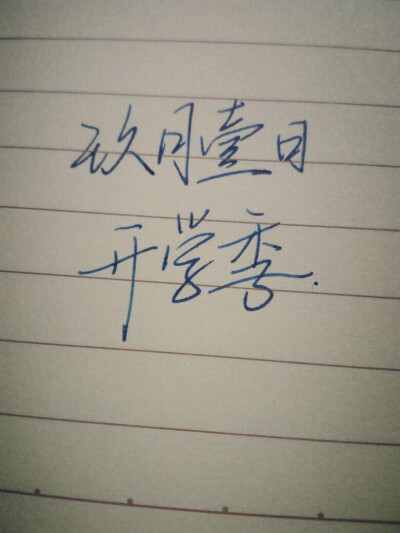 玖月壹日
开学季.